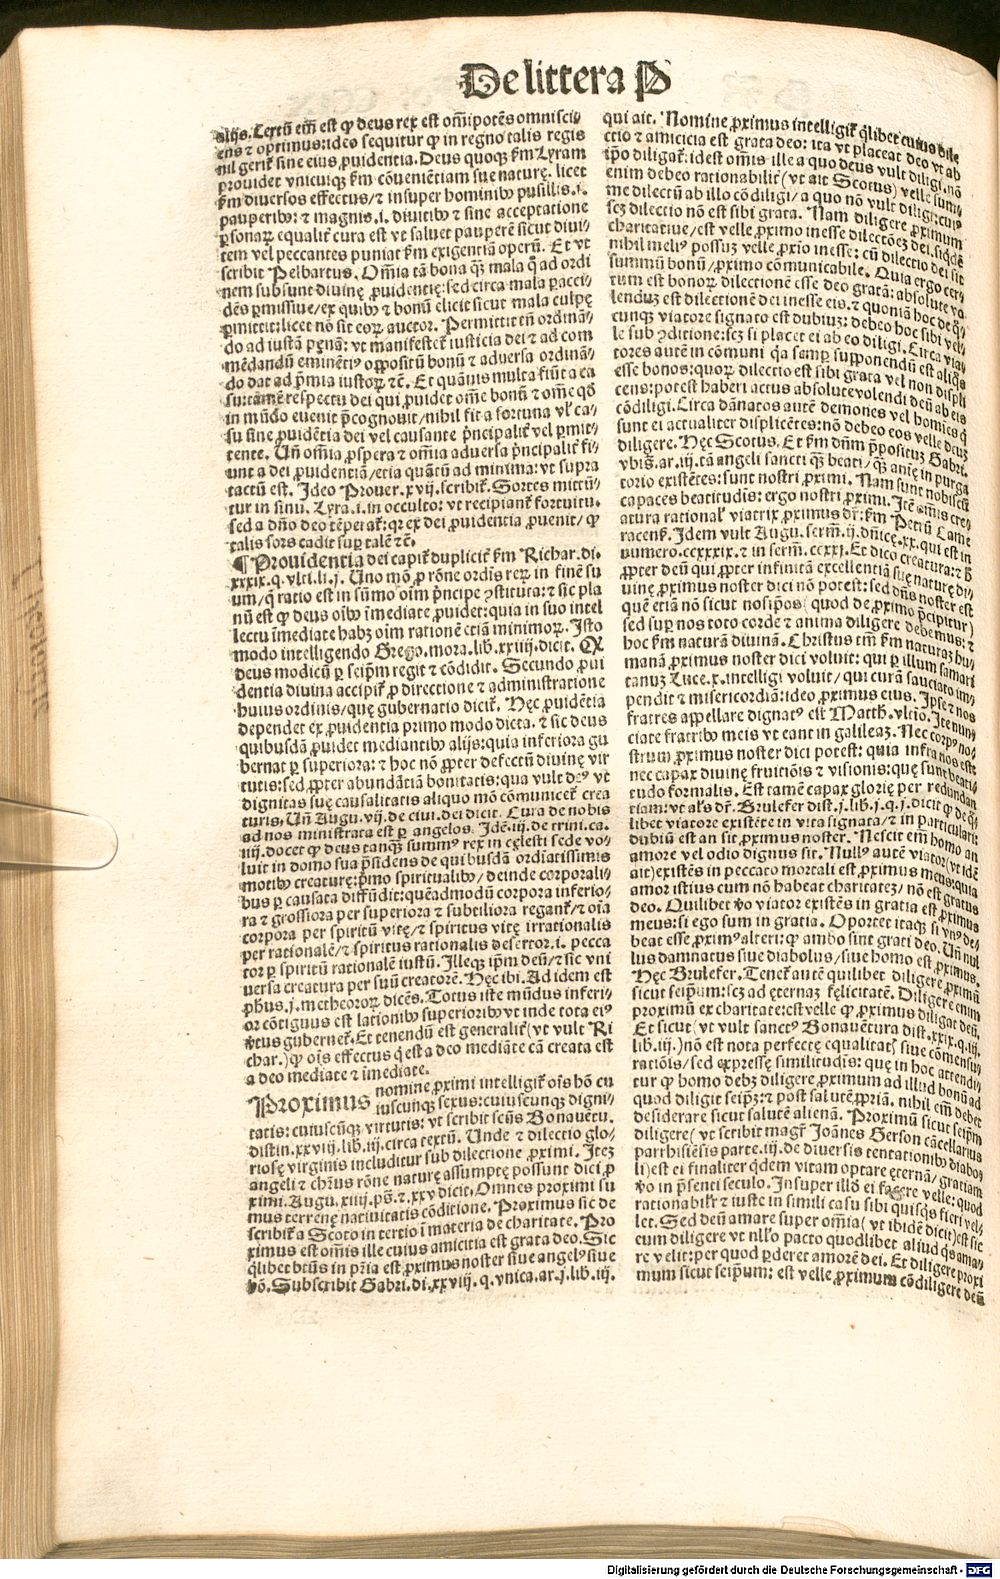 De littera P
alijs. Certū em̄ est ꝙ deus rex est om̄ipotēs omnisci/
ens ⁊ optimus: ideo sequitur ꝙ in regno talis regis
nil gerit᷑ sine eius ꝓuidentia. Deus quoqꝫ ẜm Lyram
prouidet vnicuiqꝫ ẜm cōuenientiam sue naturę. licet
ẜm diversos effectus/⁊ insuper hominibꝰ pusillis .i.
pauperibꝰ: ⁊ magnis .i. diuitibꝰ ⁊ sine acceptatione
ꝑsonaꝝ equalit᷑ cura est vt saluet pauperē sicut diui/
tem vel peccantes puniat ẜm exigentiā operū. Et vt
scribit Pelbartus. Om̄ia tā bona qꝫ mala q̄ ad ordi
nem subsunt divinę ꝓuidentię: sed circa mala ꝑacci/
dēs ꝑmissiue/ex quibꝰ ⁊ bonū elicit sicut mala culpę
ꝑmittit: licet nō sit eoꝝ auctor. Permittit tn̄ ordinā/
do ad iustā pęnā: vt manifestet᷑ iusticia dei ⁊ ad com
mēdandū eminētiꝰ oppositū bonū ⁊ aduersa ordinā/
do dat ad p̄mia iustoꝝ ⁊c̄. Et quāuis multa fiūt a ca
su: tamē respectu dei qui ꝓuidet om̄e bonū ⁊ om̄e qd̄
in mūdo euenit p̄cognouit/nihil fit a fortuna vl̓ ca/
su sine ꝓuidētia dei vel causante p̄ncipalit᷑ vel ꝑmit/
tente. Un̄ om̄ia ꝓspera ⁊ om̄ia aduersa p̄ncipalit᷑ fi/
unt a dei ꝓuidentiā/etiā quātū ad minima: vt supra
tactū est. Ideo Prouer. xvij. scribit᷑. Sortes mittū/
tur in sinū. Lyra .i. in occulto: vt recipiant᷑ fortuitu.
sed a dn̄o deo tēperat᷑: qꝛ ex dei ꝓuidentia ꝓuenit/ ꝙ
talis sors cadit suꝑ talē ⁊c̄.
¶ Providentia dei capit᷑ duplicit᷑ ẜm Richar. di.
xxxix. q. vlti. li. j. Uno mō ꝓ rōne ordīs reꝝ in finē su
um/q̄ ratio est in sūmo oīm p̄ncipe ꝯstituta: ⁊ sic pla
nū est ꝙ deus oībꝰ īmediate ꝓuidet: quia in suo intel
lectu īmediate habꝫ oīm rationē etiā minimoꝝ. Isto
modo intelligendo Grego. mora. lib. xxiiij. dicit. Qꝫ
deus modicū ꝑ seip̄m regit ⁊ cōdidit. Secundo ꝓui
dentia divina accipit᷑ ꝓ directione ⁊ administratione
huius ordinis/quę gubernatio dicit᷑. Hęc ꝓuidētia
dependet ex ꝓuidentia primo modo dicta. ⁊ sic deus
quibusdā ꝓuidet mediantibꝰ alijs: quia inferiora gu
bernat ꝑ superiora: ⁊ hoc nō ꝓpter defectū divinę vir
tutis: sed ꝓpter abundātiā bonitatis: qua vult deꝰ vt
dignitas suę causalitatis aliquo mō cōmunicet᷑ crea
turis. Un̄ Augu. vij. de ciui. dei dicit. Cura de nobis
ad nos ministrata est ꝑ angelos. Idē .iij. de trini. ca.
iiij. docet ꝙ deus tanqꝫ summꝰ rex in cęlesti sede vo/
luit in domo sua p̄sidens de quibusdā ordiatissimis
motibꝰ creaturę: p̄mo spiritualibꝰ/ deinde corporali/
bus ꝑ causata diffūdit: quēadmodū corpora inferio/
ra ⁊ grossiora per superiora ⁊ subtiliora regant᷑/⁊ oīa
corpora per spiritū vitę/⁊ spiritus vitę irrationalis
per rationalē/⁊ spiritus rationalis desertor .i. pecca
tor ꝑ spiritū rationalē iustū. Illeqꝫ ip̄m deū/⁊ sic vni
versa creatura per suū creatorē. Hęc ibi. Ad idem est
ph̄us .j. metheoroꝝ dicēs. Totus iste mūdus inferi/
or cōtiguus est lationibꝰ superioribꝰ vt inde tota eiꝰ
v̓tus gubernet᷑. Et tenendū est generalit᷑ (vt vult Ri
char.) ꝙ oīs effectus q̄ est a deo mediāte cā creata est
a deo mediate ⁊ īmediate.
Proximus nomine ꝓximi intelligit᷑ oīs hō cu
iuscunqꝫ sexus: cuiuscunqꝫ digni/
tatis: cuiuscūqꝫ virtutis: vt scribit scūs Bonauētu.
distin. xxviij. lib. iij. circa textū. Unde ⁊ dilectio glo/
riosę virginis includitur sub dilectione ꝓximi. Itez
angeli ⁊ chr̄us rōne naturę assumptę possunt dici ꝓ
ximi. Augu. xiiij. ps̄. ⁊. xxv dicit. Omnes proximi su
mus terrenę nativitatis cōditione. Proximus sic de
scribit᷑ a Scoto in tertio ī materia de charitate. Pro
ximus est om̄is ille cuius amicitia est grata deo. Sic
q̄libet btūs in pr̄ia est ꝓximus noster siue angelꝰ siue
hō. Subscribit Gabri. di. xxviij. q. vnica. ar. j. lib. iij.
qui ait. Nomine ꝓximus intelligit᷑ q̄libet cuius dile
ctio ⁊ amicicia est grata deo: ita vt placeat deo vt ab
ip̄o diligat᷑: idest om̄is ille a quo deus vult diligi. nō
enim debeo rationabilit᷑ (vt ait Scotus) velle sum/
me dilectū ab illo cōdiligi/ a quo nō vult diligi: cuiꝰ
scꝫ dilectio nō est sibi grata. Nam diligere ꝓximum
charitatiue/est velle ꝓximo inesse dilectōeꝫ dei. siqdē
nihil meliꝰ possuꝫ velle ꝓxīo inesse: cū dilectio dei sit
summū bonū/ꝓximo cōmunicabile. Quia ergo cer/
tum est bonoꝝ dilectionē esse deo gratā: absolute vo
lenduꝫ est dilectionē dei inesse eis. ⁊ quoniā hoc de q̄/
cunqꝫ viatore signato est dubiuꝫ: debeo hoc sibi vel/
le sub ꝯditione: scꝫ si placet ei ab eo diligi. Circa via/
tores autē in cōmuni q̄a semꝑ supponendū est aliq̄s
esse bonos: quoꝝ dilectio est sibi grata vel non displi
cens: potest haberi actus absolute volendi deū ab eis
cōdiligi. Circa dānatos autē demones vel homīes q̄
sunt ei actualiter displicētes: nō debeo eos velle deuꝫ
diligere. Hęc Scotus. Et ẜm dn̄m p̄positūꝫ Gabri.
vbi s. ar. iij. tā angeli sancti qꝫ beati/ qꝫ anię in purga
torio existētes: sunt nostri ꝓximi. Nam sunt nobiscū
capaces beatitudis: ergo nostri ꝓximi. Itē om̄is cre/
atura rational᷑ viatrix ꝓximus dr̄: ẜm Petrū Came
racens̄. Idem vult Augu. serm̄. ij. dn̄icę. xx. qui est in
numero. ccxxxix. ⁊ in serm̄. ccxxj. Et dico creatura: ⁊ ħ
ꝓpter deū qui ꝓpter infinitā excellentiā suę naturę di/
vinę ꝓximus noster dici nō potest: sed dn̄s noster est
quē etiā nō sicut nosip̄os (quod de ꝓximo p̄cipitur)
sed suꝑ nos toto corde ⁊ anima diligere debemus: ⁊
hoc ẜm naturā divinā. Christus tm̄ ẜm naturaꝫ hu/
manā ꝓximus noster dici voluit: qui ꝑ illum samari
tanuꝫ Luce. x. intelligi voluit/ qui curā sauciato im/
pendit ⁊ misericordiā: ideo ꝓximus eius. Ipse ⁊ nos
fratres appellare dignatꝰ est Matth. vltīo. Ite nun/
ciate fratribꝰ meis vt eant in galileaꝫ. Nec corpꝰ no/
strum ꝓximus noster dici potest: quia infra nos est:
nec capax divinę fruitiōis ⁊ visionis: quę sunt beati/
tudo formalis. Est tamē capax glorię per redundan
tiam: vt als̓ dr̄. Brulefer dist. j. lib. j. q. j. dicit ꝙ de q̄/
libet viatore existēte in vita signata/⁊ in particulari:
dubiū est an sit ꝓximus noster. Nescit em̄ homo an
amore vel odio dignus sit. Nullꝰ autē viator (vt idē
ait) existēs in peccato mortali est ꝓximus meus: quia
amor istius cum nō habeat charitateꝫ/ nō est gratus
deo. Quilibet v̓o viator existēs in gratia est ꝓximus
meus: si ego sum in gratia. Oportet itaqꝫ si vnꝰ de/
beat esse ꝓximꝰ alteri: ꝙ ambo sint grati deo. Un̄ nul
lus damnatus siue diabolus/siue homo est ꝓximus.
Hęc Brulefer. Tenet᷑ autē quilibet diligere ꝓximū
sicut seip̄um: scꝫ ad ęternaꝫ fęlicitatē. Diligere enim
proximū ex charitate: est velle ꝙ ꝓximus diligat deū.
Et sicut (vt vult sanctꝰ Bonauētura dist. xxix. q. iij.
lib. iij.) nō est nota perfectę equalitatꝭ siue cōmensu/
ratiōis/ sed expressę similitudīs: que in hoc attendi/
tur ꝙ homo debꝫ diligere ꝓximum ad illud bonū ad
quod diligit seip̄ꝫ: ⁊ post salutē ꝓpriā. nihil em̄ debet
desiderare sicut salutē alienā. Proximū sicut seip̄m
diligere (vt scribit magr̄ Joānes Gerson cācellarius
parrhisiēsis parte. iij. de diversis tentationibꝰ diabo
li) est ei finaliter q̄dem vitam optare ęternā/ gratiam
v̓o in p̄senti seculo. Insuper illd̓ ei facere velle: quod
rationabilr̄ ⁊ iuste in simili casu sibi quisqꝫ fieri vel/
let. Sed deū amare super om̄ia (vt ibidē dicit) est sic
eum diligere vt nllo pacto quodlibet aliud qꝫ ama/
re velit: per quod ꝑderet amorē dei. Et diligere proxi
mum sicut seip̄um: est velle ꝓximum cōdiligere deū
Digitalisierung gefördert durch die Deutsche Forschungsgemeinschaft - DFG